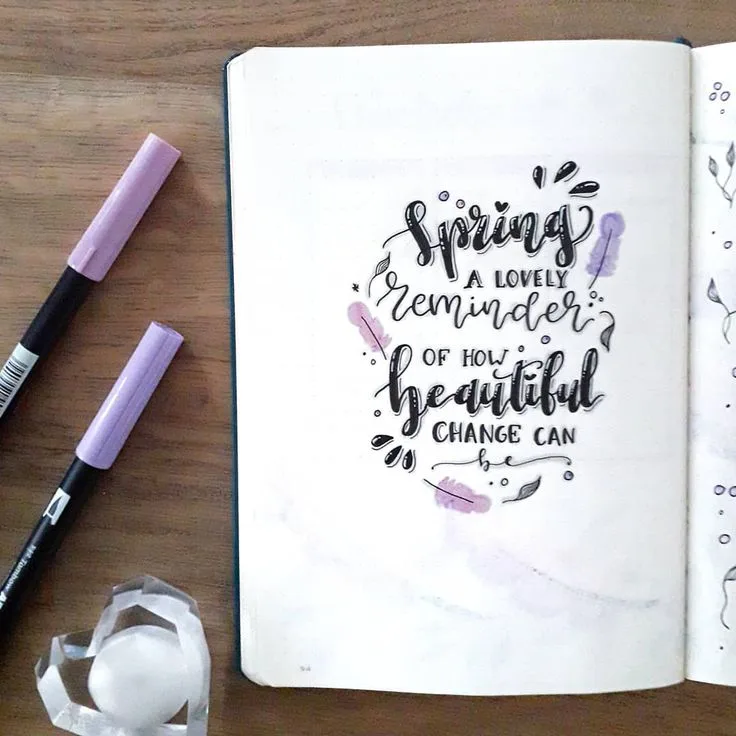 Spring
A LOVELY
reminder
OF HOW
beautiful
CHANGE CAN
be
Tombow